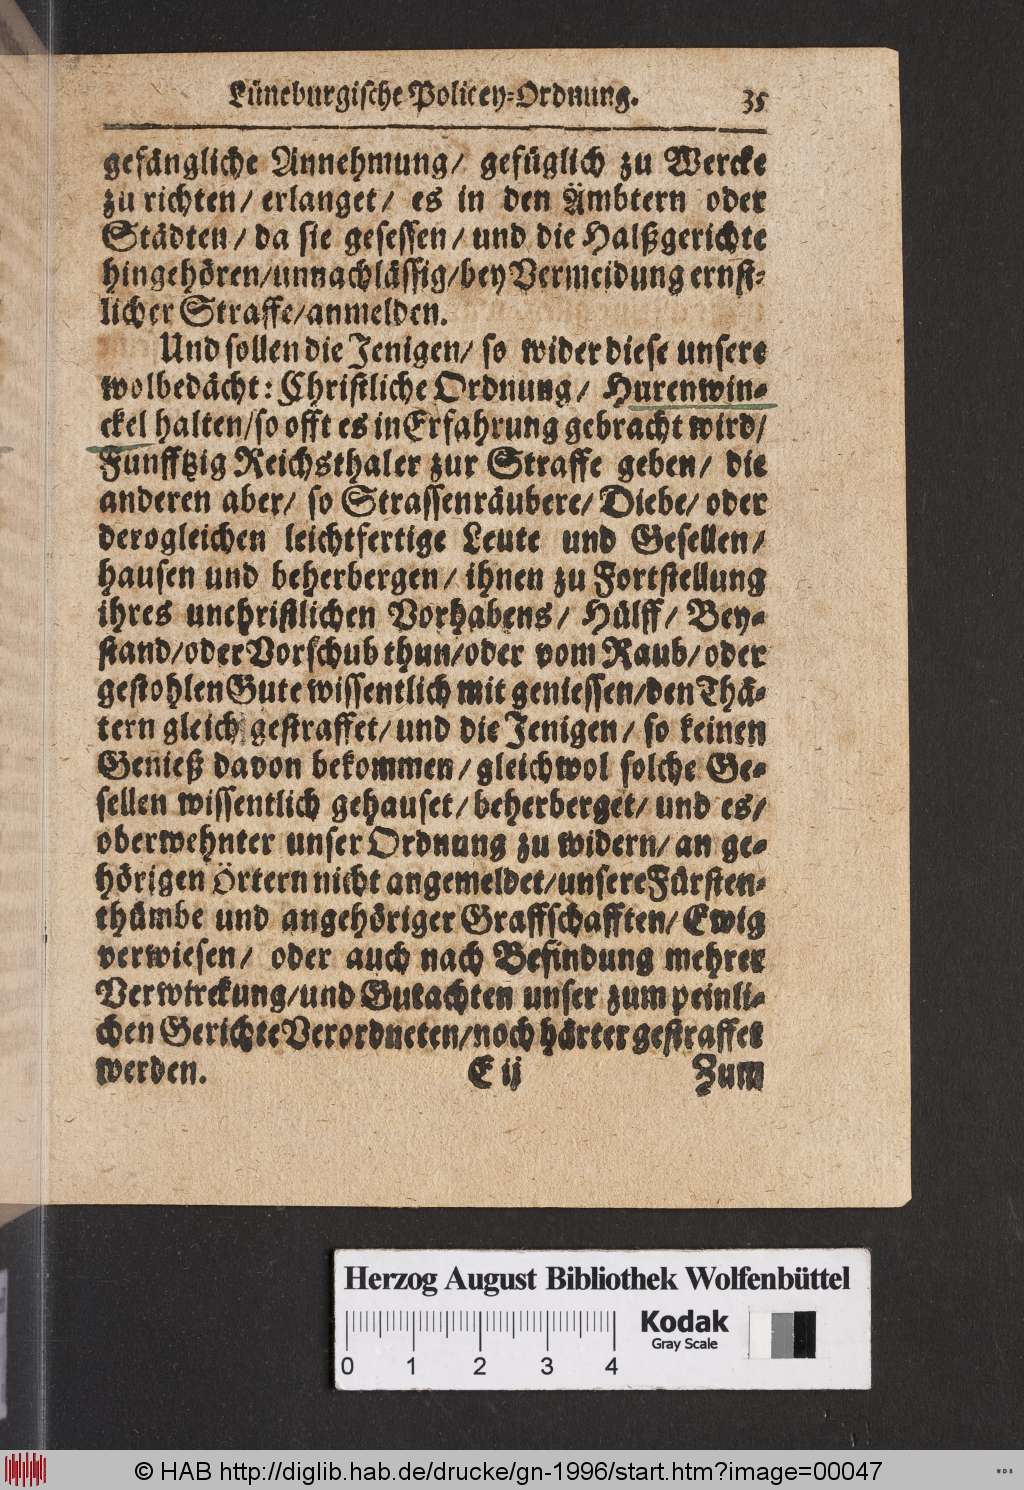 Lüneburgische Policey-Ordnung. 35
gefängliche Annehmung/ gefüglich zu Wercke
zu richten/ erlanget/ es in den Ämbtern oder
Städten/ da sie gesessen/ und die Halßgerichte
hingehören/unnachlässig/bey Vermeidung ernst-
licher Straffe/anmelden.
Und sollen die Jenigen/ so wider diese unsere
wolbedächt: Christliche Ordnung/ Hurenwin-
ckel halten/so offt es in Erfahrung gebracht wird/
Funfftzig Reichsthaler zur Straffe geben/ die
anderen aber/ so Strassenräubere/ Diebe/ oder
derogleichen leichtfertige Leute und Gesellen/
hausen und beherbergen/ ihnen zu Fortstellung
ihres unchristlichen Vorhabens/ Hülff/ Bey-
stand/oder Vorschub thun/oder vom Raub/oder
gestohlen Gute wissentlich mit geniessen/den Thä-
tern gleich gestraffet/und die Jenigen/ so keinen
Genieß davon bekommen/gleichwol solche Ge-
sellen wissentlich gehauset/beherberget/ und es/
oberwehnter unser Ordnung zu widern/an ge-
hörigen Örtern nicht angemeldet/unsere Fürsten-
thümbe und angehöriger Graffschafften/ Ewig
verwiesen/ oder auch nach Befindung mehrer
Verwirckung/und Gutachten unser zum peinli-
chen Gerichte Verordneten/noch härter gestraffet
werden. E ij Zum
Herzog August Bibliothek Wolfenbüttel
Kodak
Gray Scale
0 1 2 3 4
© HAB http://diglib.hab.de/drucke/gn-1996/start.htm?image=00047